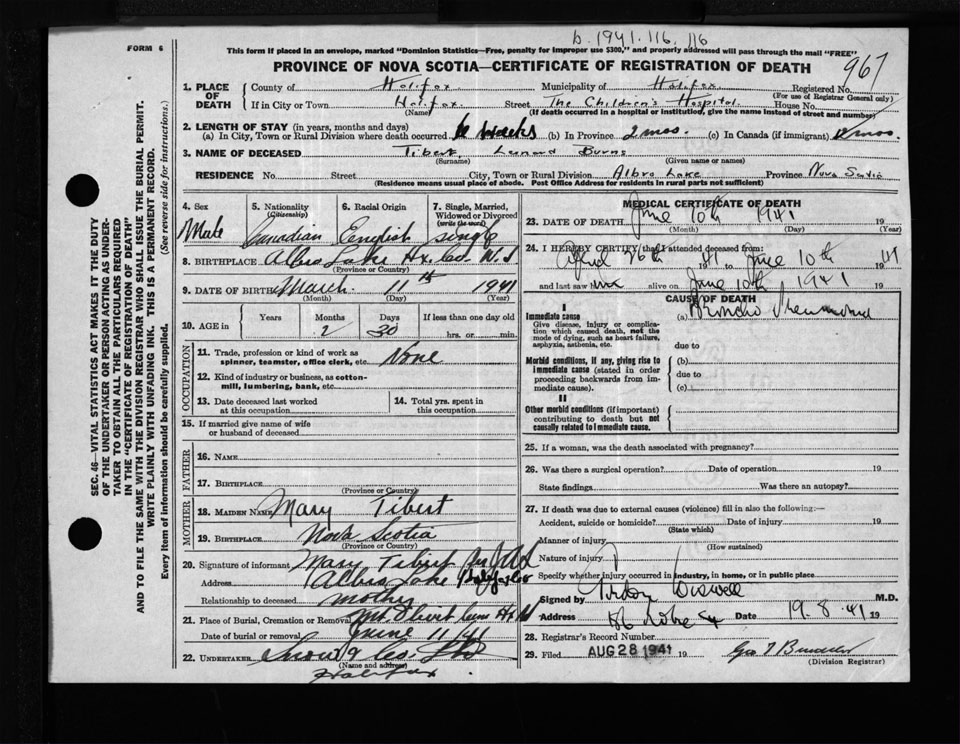 FORM 6
b. 1941. 116. 116
This form if placed in an envelope, marked "Dominion Statistics—Free, penalty for improper use $300," and properly addressed will pass through the mail "FREE"
PROVINCE OF NOVA SCOTIA—CERTIFICATE OF REGISTRATION OF DEATH
967
SEC. 46—VITAL STATISTICS ACT MAKES IT THE DUTY
OF THE UNDERTAKER OR PERSON ACTING AS UNDER-
TAKER TO OBTAIN ALL THE PARTICULARS REQUIRED
IN THE "CERTIFICATE OF REGISTRATION OF DEATH"
AND TO FILE THE SAME WITH THE DIVISION REGISTRAR WHO SHALL ISSUE THE BURIAL PERMIT.
WRITE PLAINLY WITH UNFADING INK. THIS IS A PERMANENT RECORD.
Every item of information should be carefully supplied. (See reverse side for instructions.)
1. PLACE OF DEATH County of Halifax Municipality of Halifax Registered No.
(For use of Registrar General only)
If in City or Town Halifax Street The Children's Hospital House No.
(Name) (If death occurred in a hospital or institution, give the name instead of street and number)
2. LENGTH OF STAY (in years, months and days)
(a) In City, Town or Rural Division where death occurred 6 weeks (b) In Province 2 mos. (c) In Canada (if immigrant) mos.
3. NAME OF DECEASED Tibert, Leonard Burns
(Surname) (Given name or names)
RESIDENCE No. Street City, Town or Rural Division Albro Lake Province Nova Scotia
(Residence means usual place of abode. Post Office Address for residents in rural parts not sufficient)
4. Sex Male
5. Nationality (Citizenship) Canadian
6. Racial Origin English
7. Single, Married, Widowed or Divorced (write the word) single
8. BIRTHPLACE Albro Lake Hx. Co. N.S
(Province or Country)
9. DATE OF BIRTH March 11th 1941
(Month) (Day) (Year)
10. AGE in Years Months 2 Days 30 If less than one day old hrs. or min.
OCCUPATION
11. Trade, profession or kind of work as spinner, teamster, office clerk, etc. None
12. Kind of industry or business, as cotton-mill, lumbering, bank, etc.
13. Date deceased last worked at this occupation
14. Total yrs. spent in this occupation
15. If married give name of wife or husband of deceased
FATHER
16. NAME
17. BIRTHPLACE
(Province or Country)
MOTHER
18. MAIDEN NAME Mary Tibert
19. BIRTHPLACE Nova Scotia
(Province or Country)
20. Signature of informant Mary Tibert
Address Albro Lake
Relationship to deceased mother
21. Place of Burial, Cremation or Removal Mt. Olivet Cem Hx
Date of burial or removal June 11/41
22. UNDERTAKER Snow & Co. Ltd
(Name and address)
Halifax
MEDICAL CERTIFICATE OF DEATH
23. DATE OF DEATH June 10th 1941 19
(Month) (Day) (Year)
24. I HEREBY CERTIFY that I attended deceased from:
April 26th 1941 to June 10th 1941
and last saw him alive on June 10th 1941 19
CAUSE OF DEATH
I
Immediate cause (a) Broncho Pneumonia
Give disease, injury or complication which caused death, not the mode of dying, such as heart failure, asphyxia, asthenia, etc.
due to
Morbid conditions, if any, giving rise to immediate cause (stated in order proceeding backwards from immediate cause). (b)
due to
(c)
II
Other morbid conditions (if important) contributing to death but not causally related to immediate cause.
25. If a woman, was the death associated with pregnancy?
26. Was there a surgical operation? Date of operation 19
State findings Was there an autopsy?
27. If death was due to external causes (violence) fill in also the following:—
Accident, suicide or homicide? Date of injury 19
(State which)
Manner of injury
(How sustained)
Nature of injury
Specify whether injury occurred in industry, in home, or in public place
Signed by Wiswell M.D.
Address Date 19.8.41 19
28. Registrar's Record Number
29. Filed AUG 28 1941 19 Geo
(Division Registrar)